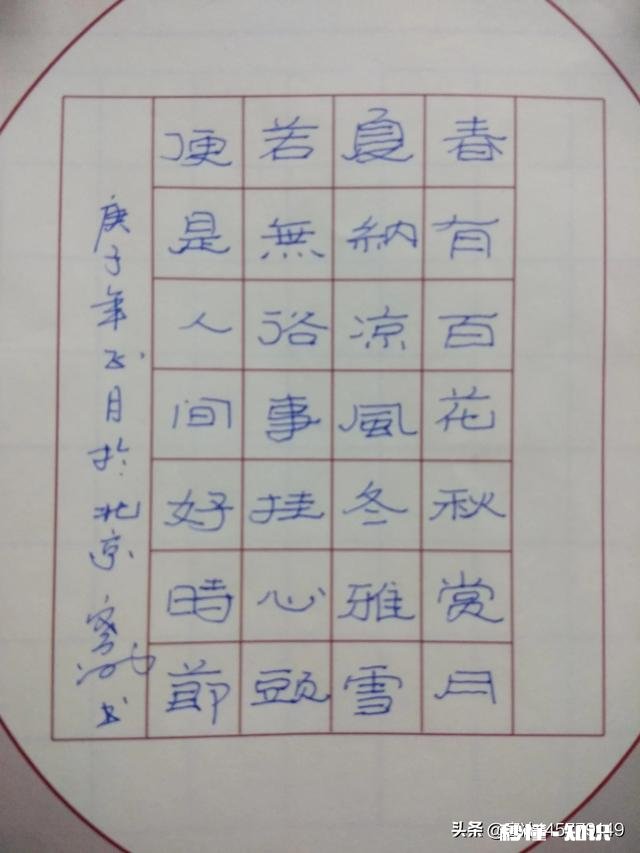 春有百花秋赏月
夏納凉風冬雅雪
若無俗事挂心頭
便是人间好時節
庚子年 月於北京 书
头条
秒懂·知识